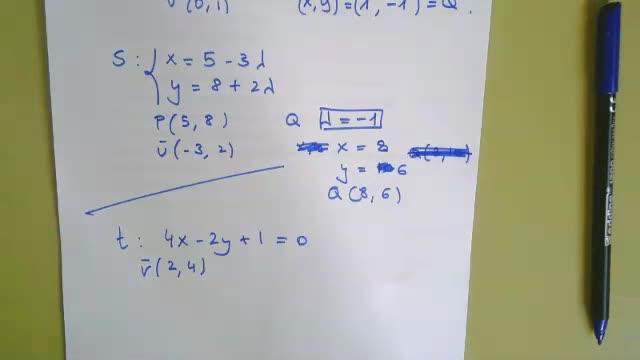 v̄(0, 1) (x,y) = (1, -1) = Q.
S: { x = 5 - 3λ
y = 8 + 2λ
P(5, 8) Q λ = -1
v̄(-3, 2) x = 8
y = 6
Q(8, 6)
t: 4x - 2y + 1 = 0
v̄(2, 4)